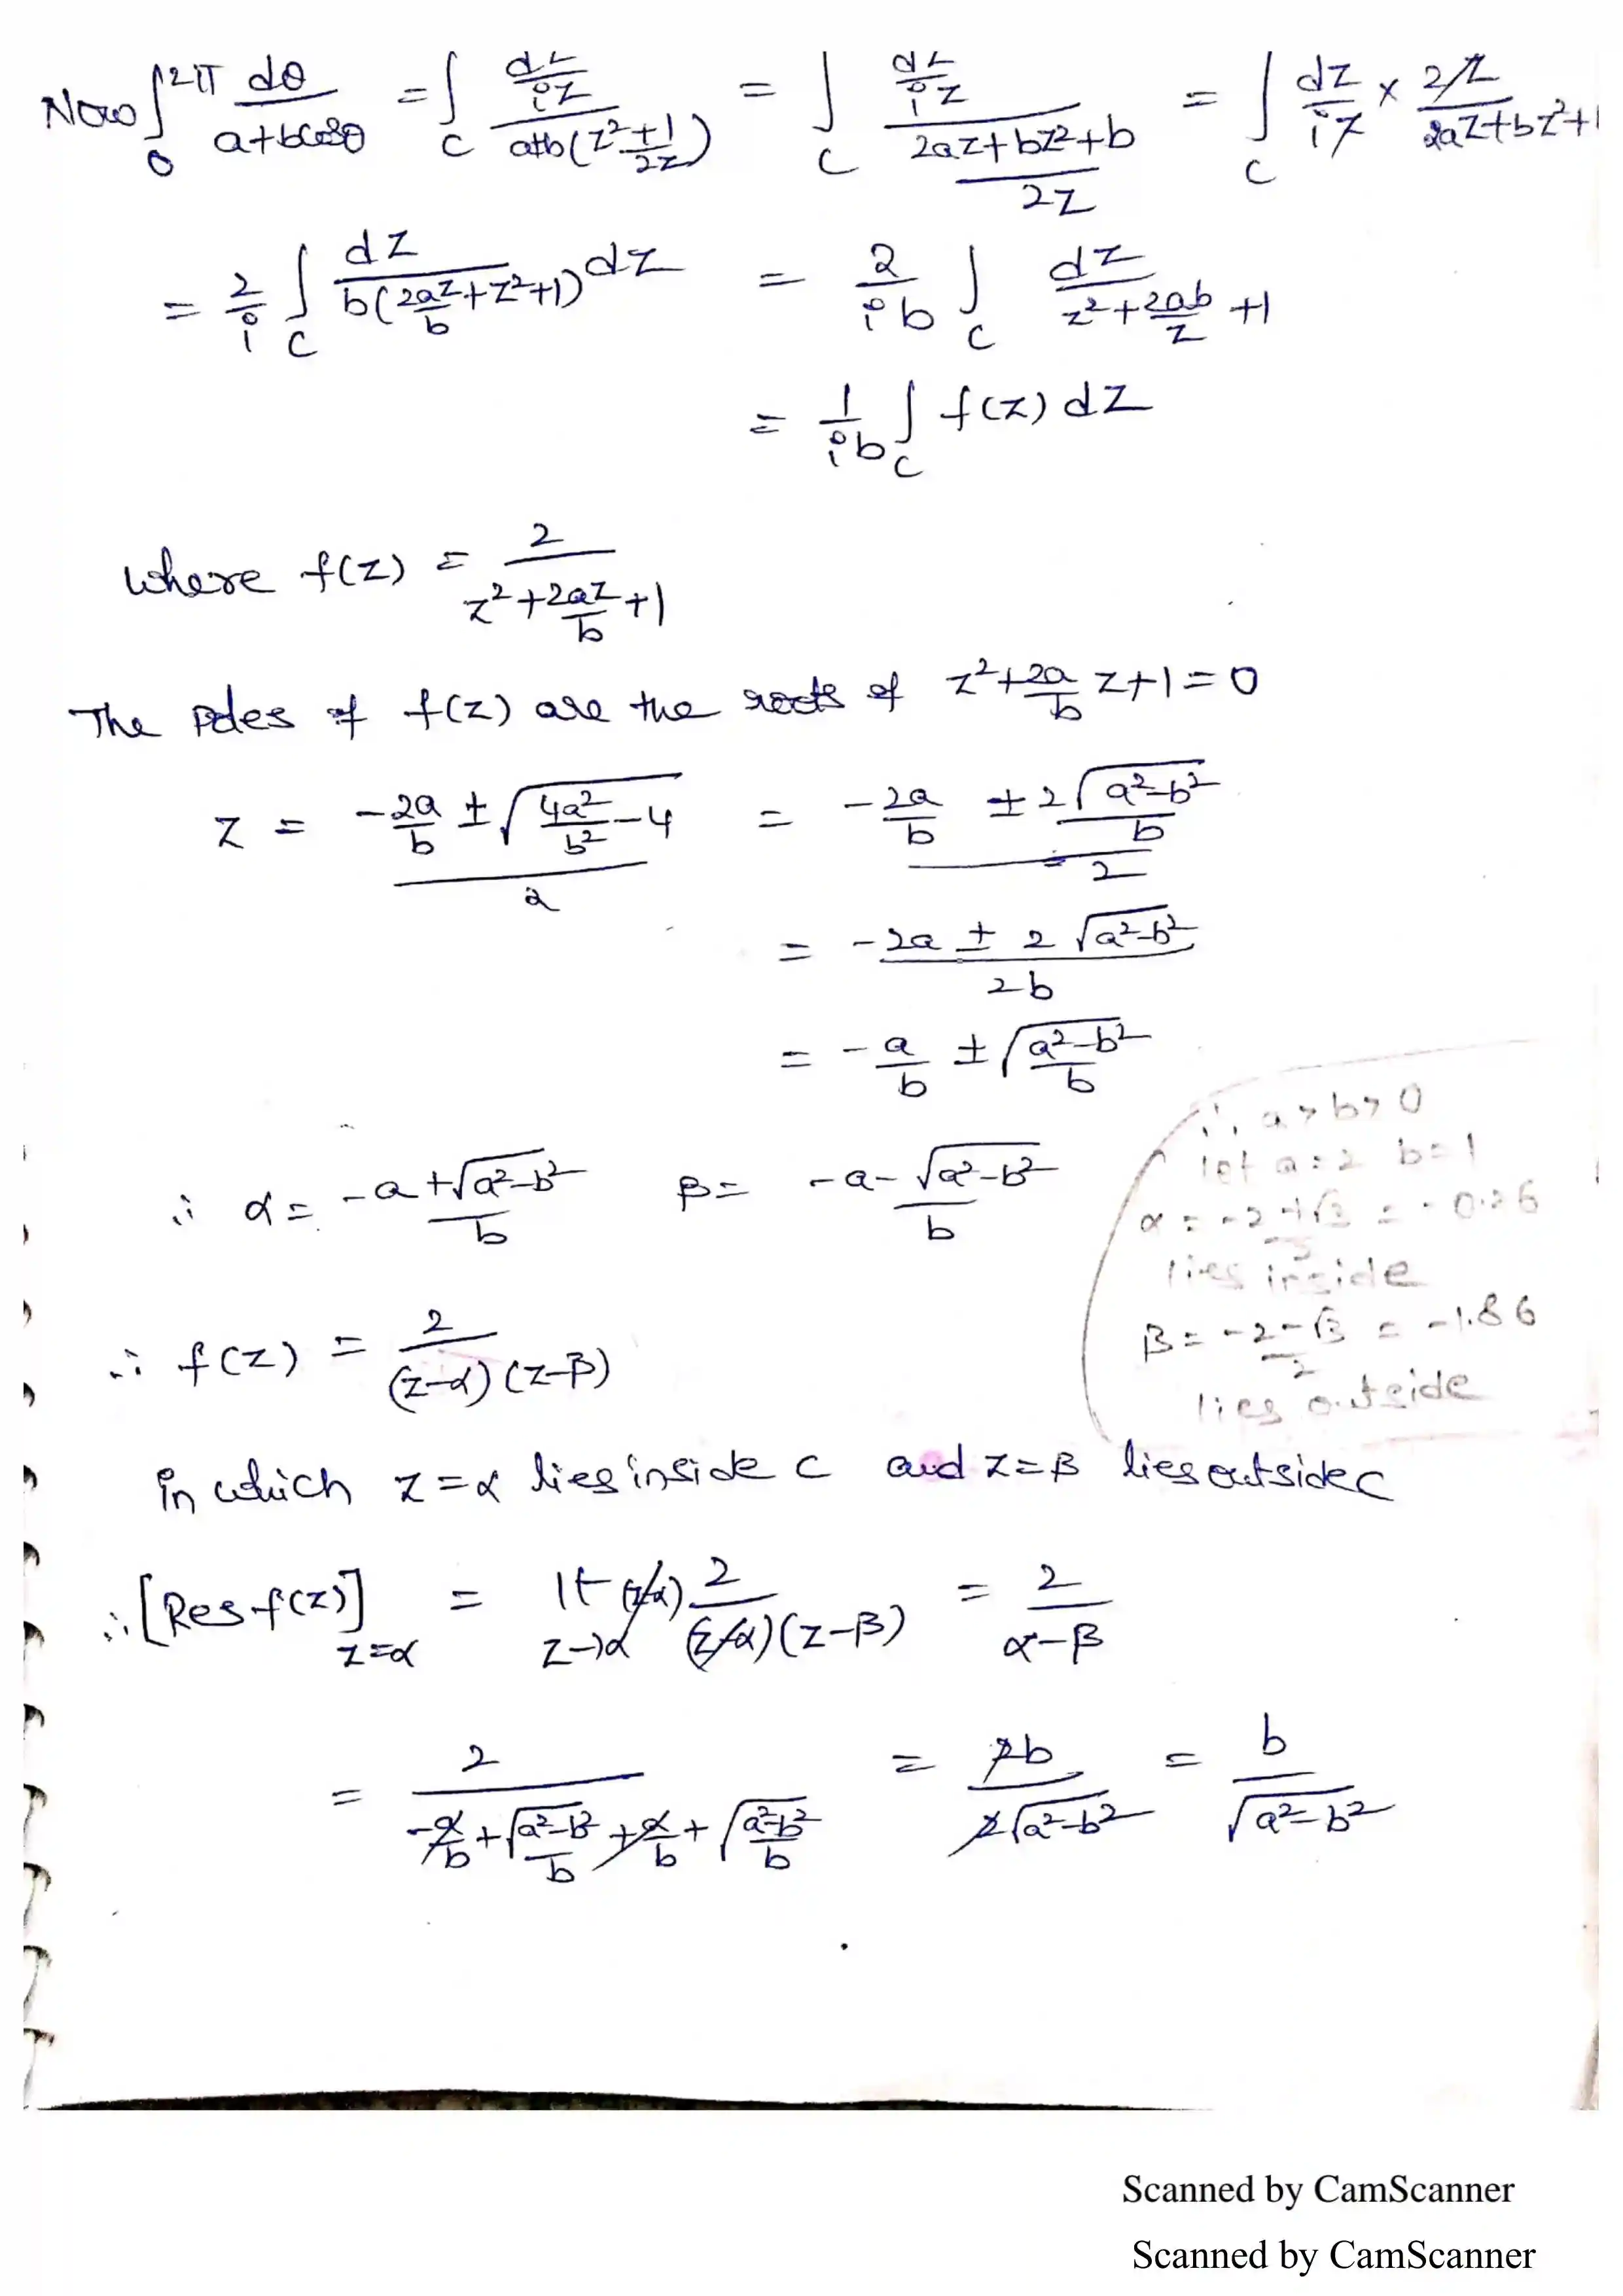 Now ∫₀^{2π} dθ/(a+bcosθ) = ∫_C (dz/iz)/(a+b(z²+1/2z)) = ∫_C (dz/iz)/((2az+bz²+b)/2z) = ∫_C dz/iz × 2z/(2az+bz²+
= 2/i ∫_C dz/(b(2az/b+z²+1)) dz = 2/ib ∫_C dz/(z²+2ab/z+1)
= 1/ib ∫_C f(z) dz
where f(z) = 2/(z²+2az/b+1)
The poles of f(z) are the roots of z²+2a/b z+1=0
z = (-2a/b ± √(4a²/b²-4))/2 = (-2a/b ± 2√(a²-b²)/b)/2
= (-2a ± 2√(a²-b²))/2b
= -a/b ± √(a²-b²)/b
∵ a > b > 0
let a = 2 b = 1
∴ α = (-a+√(a²-b²))/b β = (-a-√(a²-b²))/b
α = (-2+√3)/2 = -0.26
lies inside
∴ f(z) = 2/((z-α)(z-β))
β = (-2-√3)/2 = -1.86
lies outside
in which z=α lies inside C and z=β lies outside C
∴ [Res f(z)]_{z=α} = lt_{z→α} (z-α) 2/((z-α)(z-β)) = 2/(α-β)
= 2/(-a/b+√(a²-b²)/b+a/b+√(a²-b²)/b) = 2b/(2√(a²-b²)) = b/√(a²-b²)
Scanned by CamScanner
Scanned by CamScanner